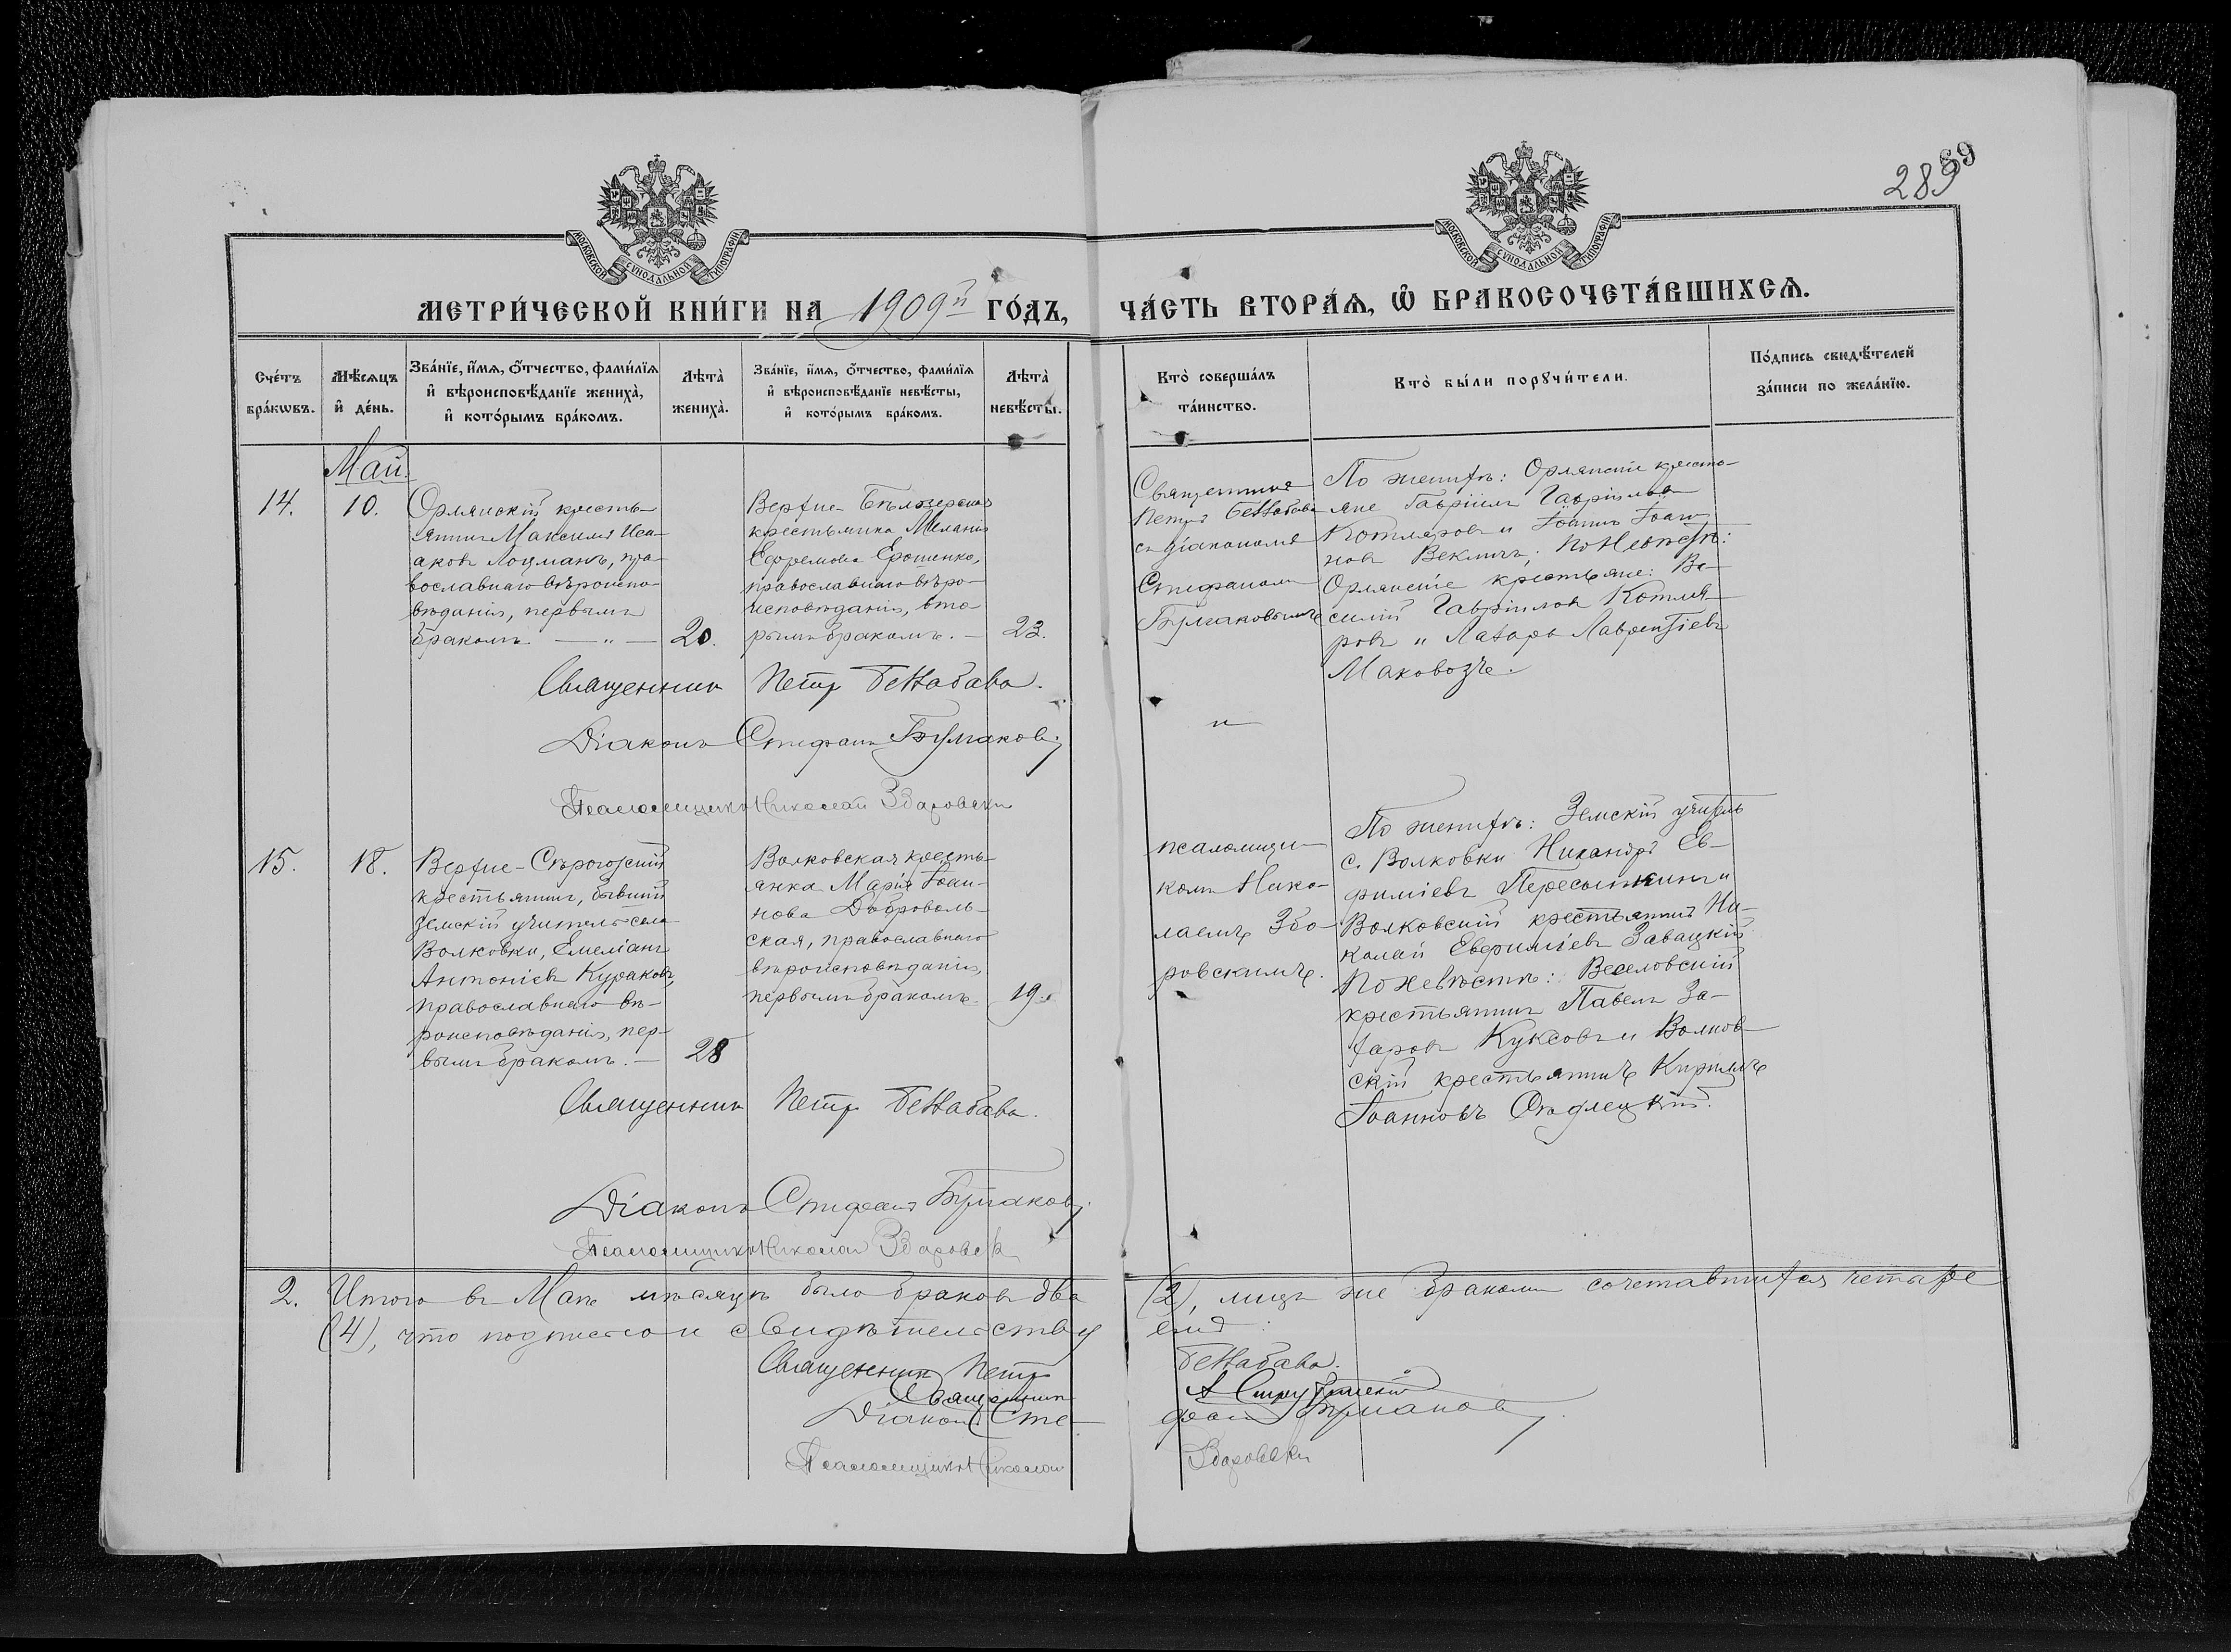 28969
МОСКОВСКОЙ СѴНОДАЛЬНОЙ ТИПОГРАФІИ
МОСКОВСКОЙ СѴНОДАЛЬНОЙ ТИПОГРАФІИ
МЕТРИ́ЧЕСКОЙ КНИ́ГИ НА 1909й ГО́ДЪ,
ЧА́СТЬ ВТОРА́Ѧ, Ѡ҆ БРАКОСОЧЕТА́ВШИХСѦ.
Сче́тъ
бра́кѡвъ.
Мѣ́сѧцъ
и҆ де́нь.
Зва́нїе, и҆́мѧ, ѻ҆́тчество, фами́лїѧ
и҆ вѣроисповѣ́данїе жениха̀,
и҆ кото́рымъ бра́комъ.
Лѣ́та̀
жениха̀.
Зва́нїе, и҆́мѧ, ѻ҆́тчество, фами́лїѧ
и҆ вѣроисповѣ́данїе невѣ́сты,
и҆ кото́рымъ бра́комъ.
Лѣ́та̀
невѣ́сты.
Кто̀ соверша́лъ
та́инство.
Кто̀ бы́ли порꙋчи́тели.
По́дпись свидѣ́телей
за́писи по жела́нїю.
Май.
14.
10.
Орлянскій кресть-
янинъ Максимъ Иса-
аковъ Лоцманъ, пра-
вославнаго вѣроиспо-
вѣданія, первымъ
бракомъ — " —
20.
Верхне-Бѣлозерская
крестьянка Меланія
Ефремова Ерошенко,
православнаго вѣро-
исповѣданія, вто-
рымъ бракомъ. —
23.
Священникъ
Петръ
съ діакономъ
Стефаномъ
По женихѣ: Орлянскіе кресть-
яне Гавріилъ Гавріиловъ
Котляровъ и Іоаннъ Іоан-
новъ Векличъ; по невѣстѣ:
Орлянскіе крестьяне: Ва-
силій Гавріиловъ Котля-
ровъ и Лазарь Лаврентіевъ
Маковозъ.
Священникъ Петр
Діаконъ Стефанъ
Псаломщикъ Николай
"
15.
18.
Верхне-Сѣрогозскій
крестьянинъ, бывшій
земскій учитель села
Волковки, Емеліанъ
Антоніевъ Кураковъ,
православнаго вѣ-
роисповѣданія, пер-
вымъ бракомъ. —
28
Волковская кресть-
янка Марія Іоан-
нова Доброволь-
ская, православнаго
вѣроисповѣданія,
первымъ бракомъ.
19.
псаломщи-
комъ Нико-
лаемъ Збо-
ровскимъ.
По женихѣ: Земскій учитель
с. Волковки Никаноръ Ев-
фиміевъ Пересыпкинъ и
Волковскій крестьянинъ Ни-
колай Евфиміевъ Завацкій.
По невѣстѣ: Веселовскій
крестьянинъ Павелъ За-
харовъ Куксовъ и Волков-
скій крестьянинъ Кириллъ
Іоанновъ
Священникъ Петр
Діаконъ Стефанъ
Псаломщикъ Николай
2. Итого въ Маѣ мѣсяцѣ было браковъ два (2), лицъ же бракомъ сочетавшихся четыре
(4), что подписомъ свидѣтельствуемъ:
Священникъ Петр
Священникъ А
Діаконъ Стефанъ
Псаломщикъ Николай